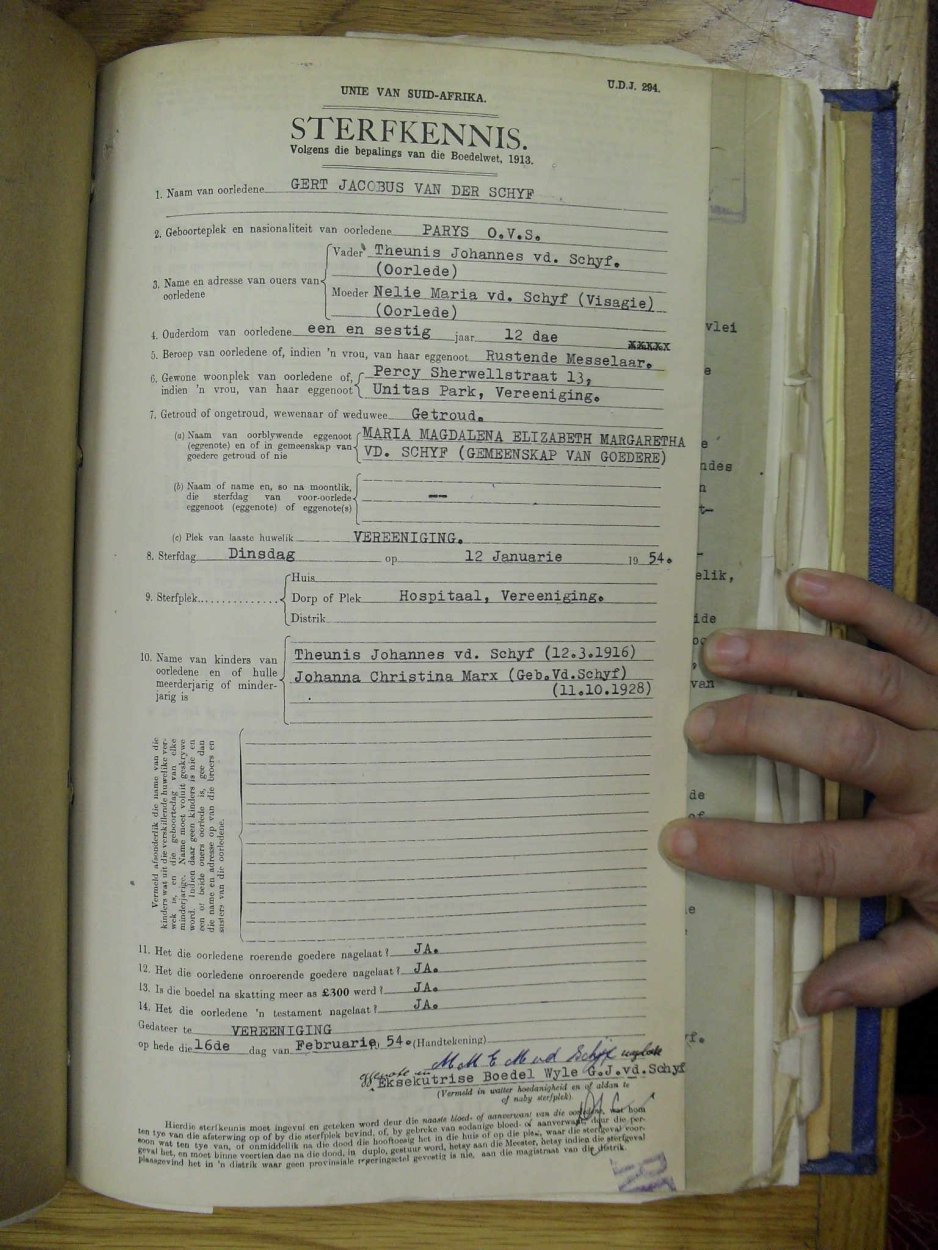 U.D.J. 294.
UNIE VAN SUID-AFRIKA.
STERFKENNIS.
Volgens die bepalings van die Boedelwet, 1913.
1. Naam van oorledene GERT JACOBUS VAN DER SCHYF
2. Geboorteplek en nasionaliteit van oorledene PARYS O.V.S.
3. Name en adresse van ouers van oorledene
Vader Theunis Johannes vd. Schyf.
(Oorlede)
Moeder Nelie Maria vd. Schyf (Visagie)
(Oorlede)
4. Ouderdom van oorledene een en sestig jaar 12 dae xxxxx
5. Beroep van oorledene of, indien 'n vrou, van haar eggenoot Rustende Messelaar.
6. Gewone woonplek van oorledene of, Percy Sherwellstraat 13,
indien 'n vrou, van haar eggenoot Unitas Park, Vereeniging.
7. Getroud of ongetroud, wewenaar of weduwee Getroud.
(a) Naam van oorblywende eggenoot MARIA MAGDALENA ELIZABETH MARGARETHA
(eggenote) en of in gemeenskap van VD. SCHYF (GEMEENSKAP VAN GOEDERE)
goedere getroud of nie
(b) Naam of name en, so na moontlik,
die sterfdag van voor-oorlede --
eggenoot (eggenote) of eggenote(s)
(c) Plek van laaste huwelik VEREENIGING.
8. Sterfdag Dinsdag op 12 Januarie 19 54.
Huis
9. Sterfplek Dorp of Plek Hospitaal, Vereeniging.
Distrik
10. Name van kinders van Theunis Johannes vd. Schyf (12.3.1916)
oorledene en of hulle Johanna Christina Marx (Geb.Vd.Schyf)
meerderjarig of minder- (11.10.1928)
jarig is
Vermeld afsonderlik die name van die
kinders wat uit die verskillende huwelike ver-
wek is, en die geboortedag van elke
minderjarige. Name moet voluit geskrywe
word. Indien daar geen kinders is nie en
een of beide ouers oorlede is, gee dan
die name en adresse op van die broers en
susters van die oorledene.
11. Het die oorledene roerende goedere nagelaat? JA.
12. Het die oorledene onroerende goedere nagelaat? JA.
13. Is die boedel na skatting meer as £300 werd? JA.
14. Het die oorledene 'n testament nagelaat? JA.
Gedateer te VEREENIGING
op hede die 16de dag van Februarie, 54. (Handtekening)
M M E M vd Schyf
Eksekutrise Boedel Wyle G.J.vd.Schyf
(Vermeld in watter hoedanigheid en of aldan te
of naby sterfplek).
Hierdie sterfkennis moet ingevul en geteken word deur die naaste bloed- of aanverwant van die oorledene, wat hom
ten tye van die afsterwing op of by die sterfplek bevind, of, by gebreke van sodanige bloed- of aanverwant, deur die per-
soon wat ten tye van, of onmiddellik na die dood die hooftoesig het in die huis of op die plek, waar die sterfgeval voor-
geval het, en moet binne veertien dae na die dood, in duplo, gestuur word, hetsy aan die Meester, hetsy indien die sterfgeval
plaasgevind het in 'n distrik waar geen provinsiale regeringsetel gevestig is nie, aan die magistraat van die distrik.
vlei
ndes
elik,
van
de